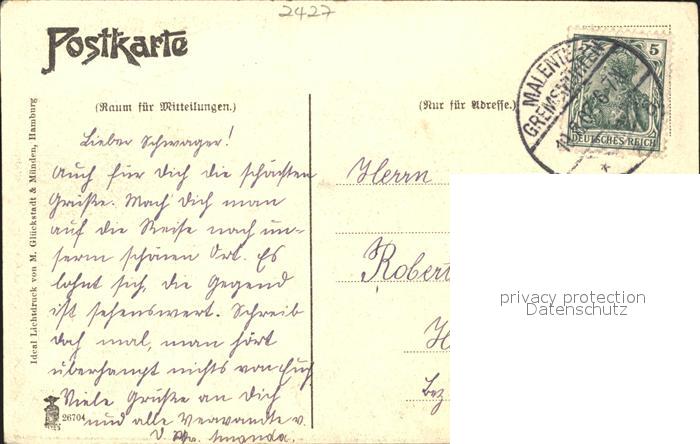 2427
Postkarte
5
MALENTE-
GREMSMÜHLEN
DEUTSCHES REICH
(Raum für Mitteilungen.)
(Nur für Adresse.)
Lieber Schwager!
Auch für Dich die schönsten
Grüße. Mach Dich man
auf die Reise nach un-
serm schönen Ort. Es
lohnt sich, die Gegend
ist sehenswert. Schreib
doch mal, man hört
überhaupt nichts von Euch.
Viele Grüße an Dich
und alle Verwandte v.
Herrn
Robert
H
Bez
privacy protection
Datenschutz
Ideal Lichtdruck von M. Glückstadt & Münden, Hamburg
26704